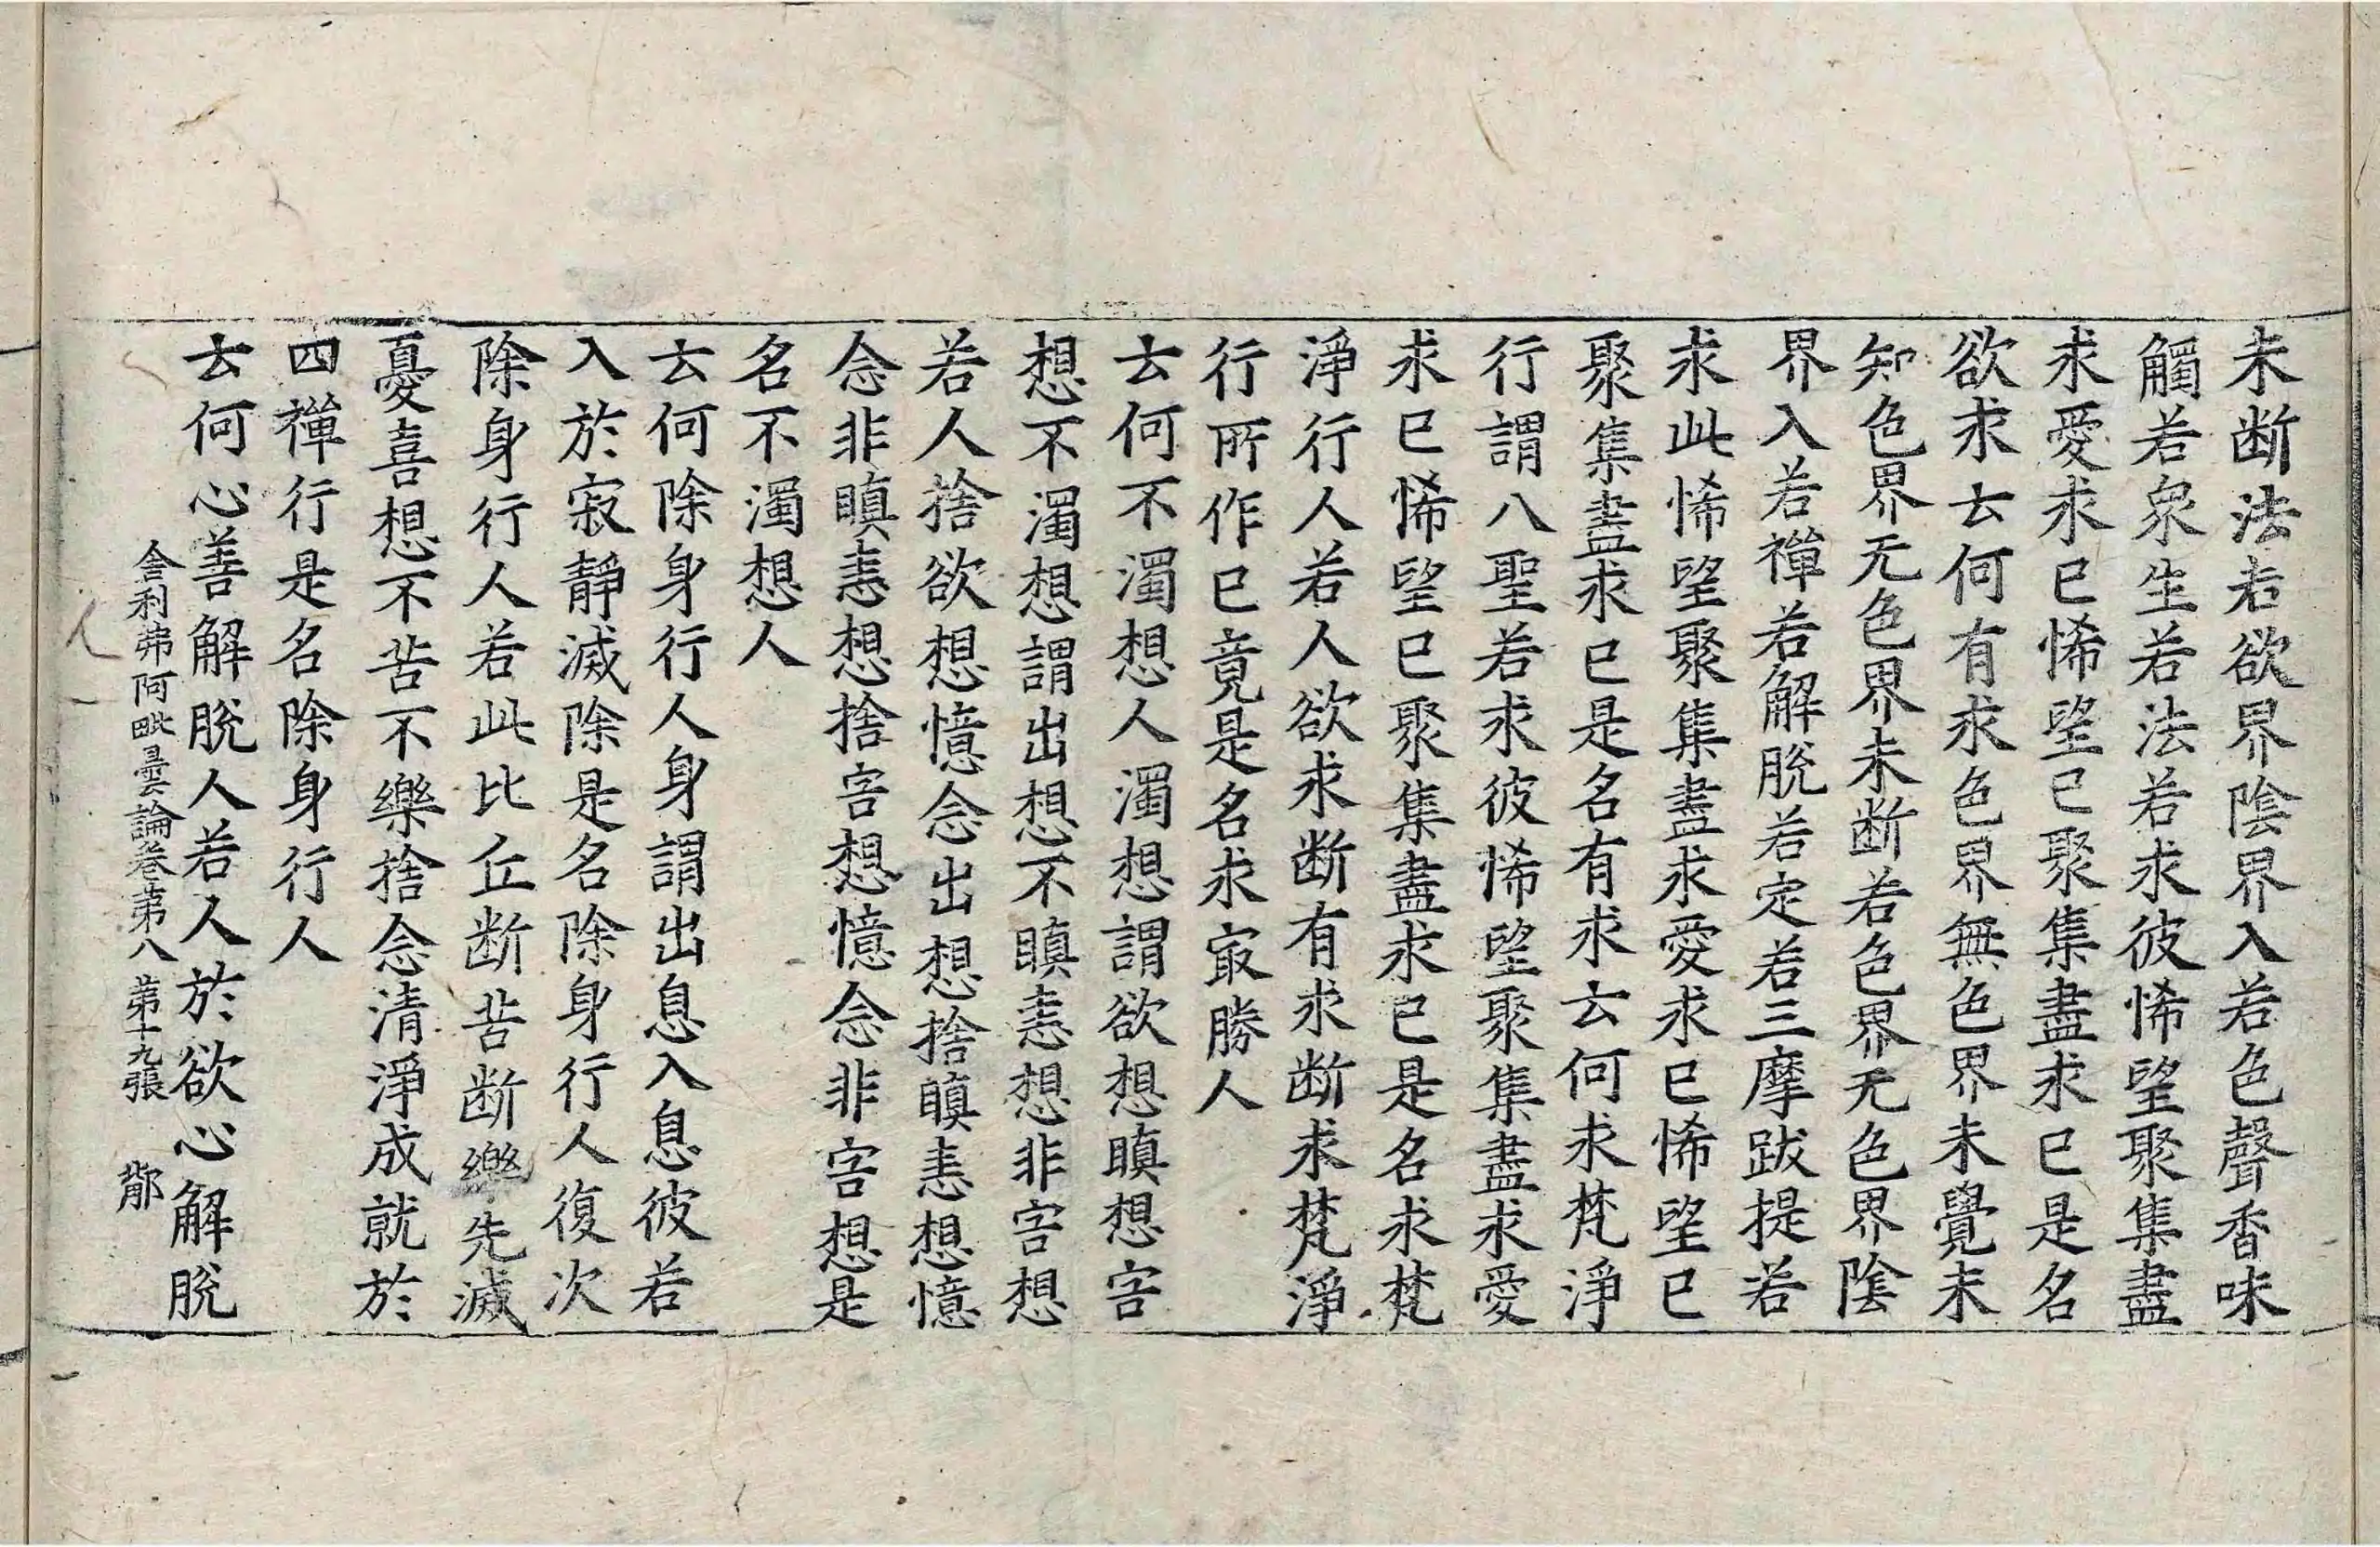 未断法若欲界陰界入若色聲香味
觸若衆生若法若求彼悕望聚集盡
求愛求已悕望已聚集盡求已是名
欲求云何有求色界無色界未覺未
知色界无色界未断若色界无色界陰
界入若禪若解脫若定若三摩跋提若
求此悕望聚集盡求愛求已悕望已
聚集盡求已是名有求云何求梵淨
行謂八聖若求彼悕望聚集盡求愛
求已悕望已聚集盡求已是名求梵
淨行人若人欲求断有求断求梵淨
行所作已竟是名求冣勝人
云何不濁想人濁想謂欲想瞋想害
想不濁想謂出想不瞋恚想非害想
若人捨欲想憶念出想捨瞋恚想憶
念非瞋恚想捨害想憶念非害想是
名不濁想人
云何除身行人身謂出息入息彼若
入於寂靜滅除是名除身行人復次
除身行人若此比丘断苦断樂先滅
憂喜想不苦不樂捨念清淨成就於
四禪行是名除身行人
云何心善解脫人若人於欲心解脫
舍利弗阿毗曇論卷苐八 苐十九張